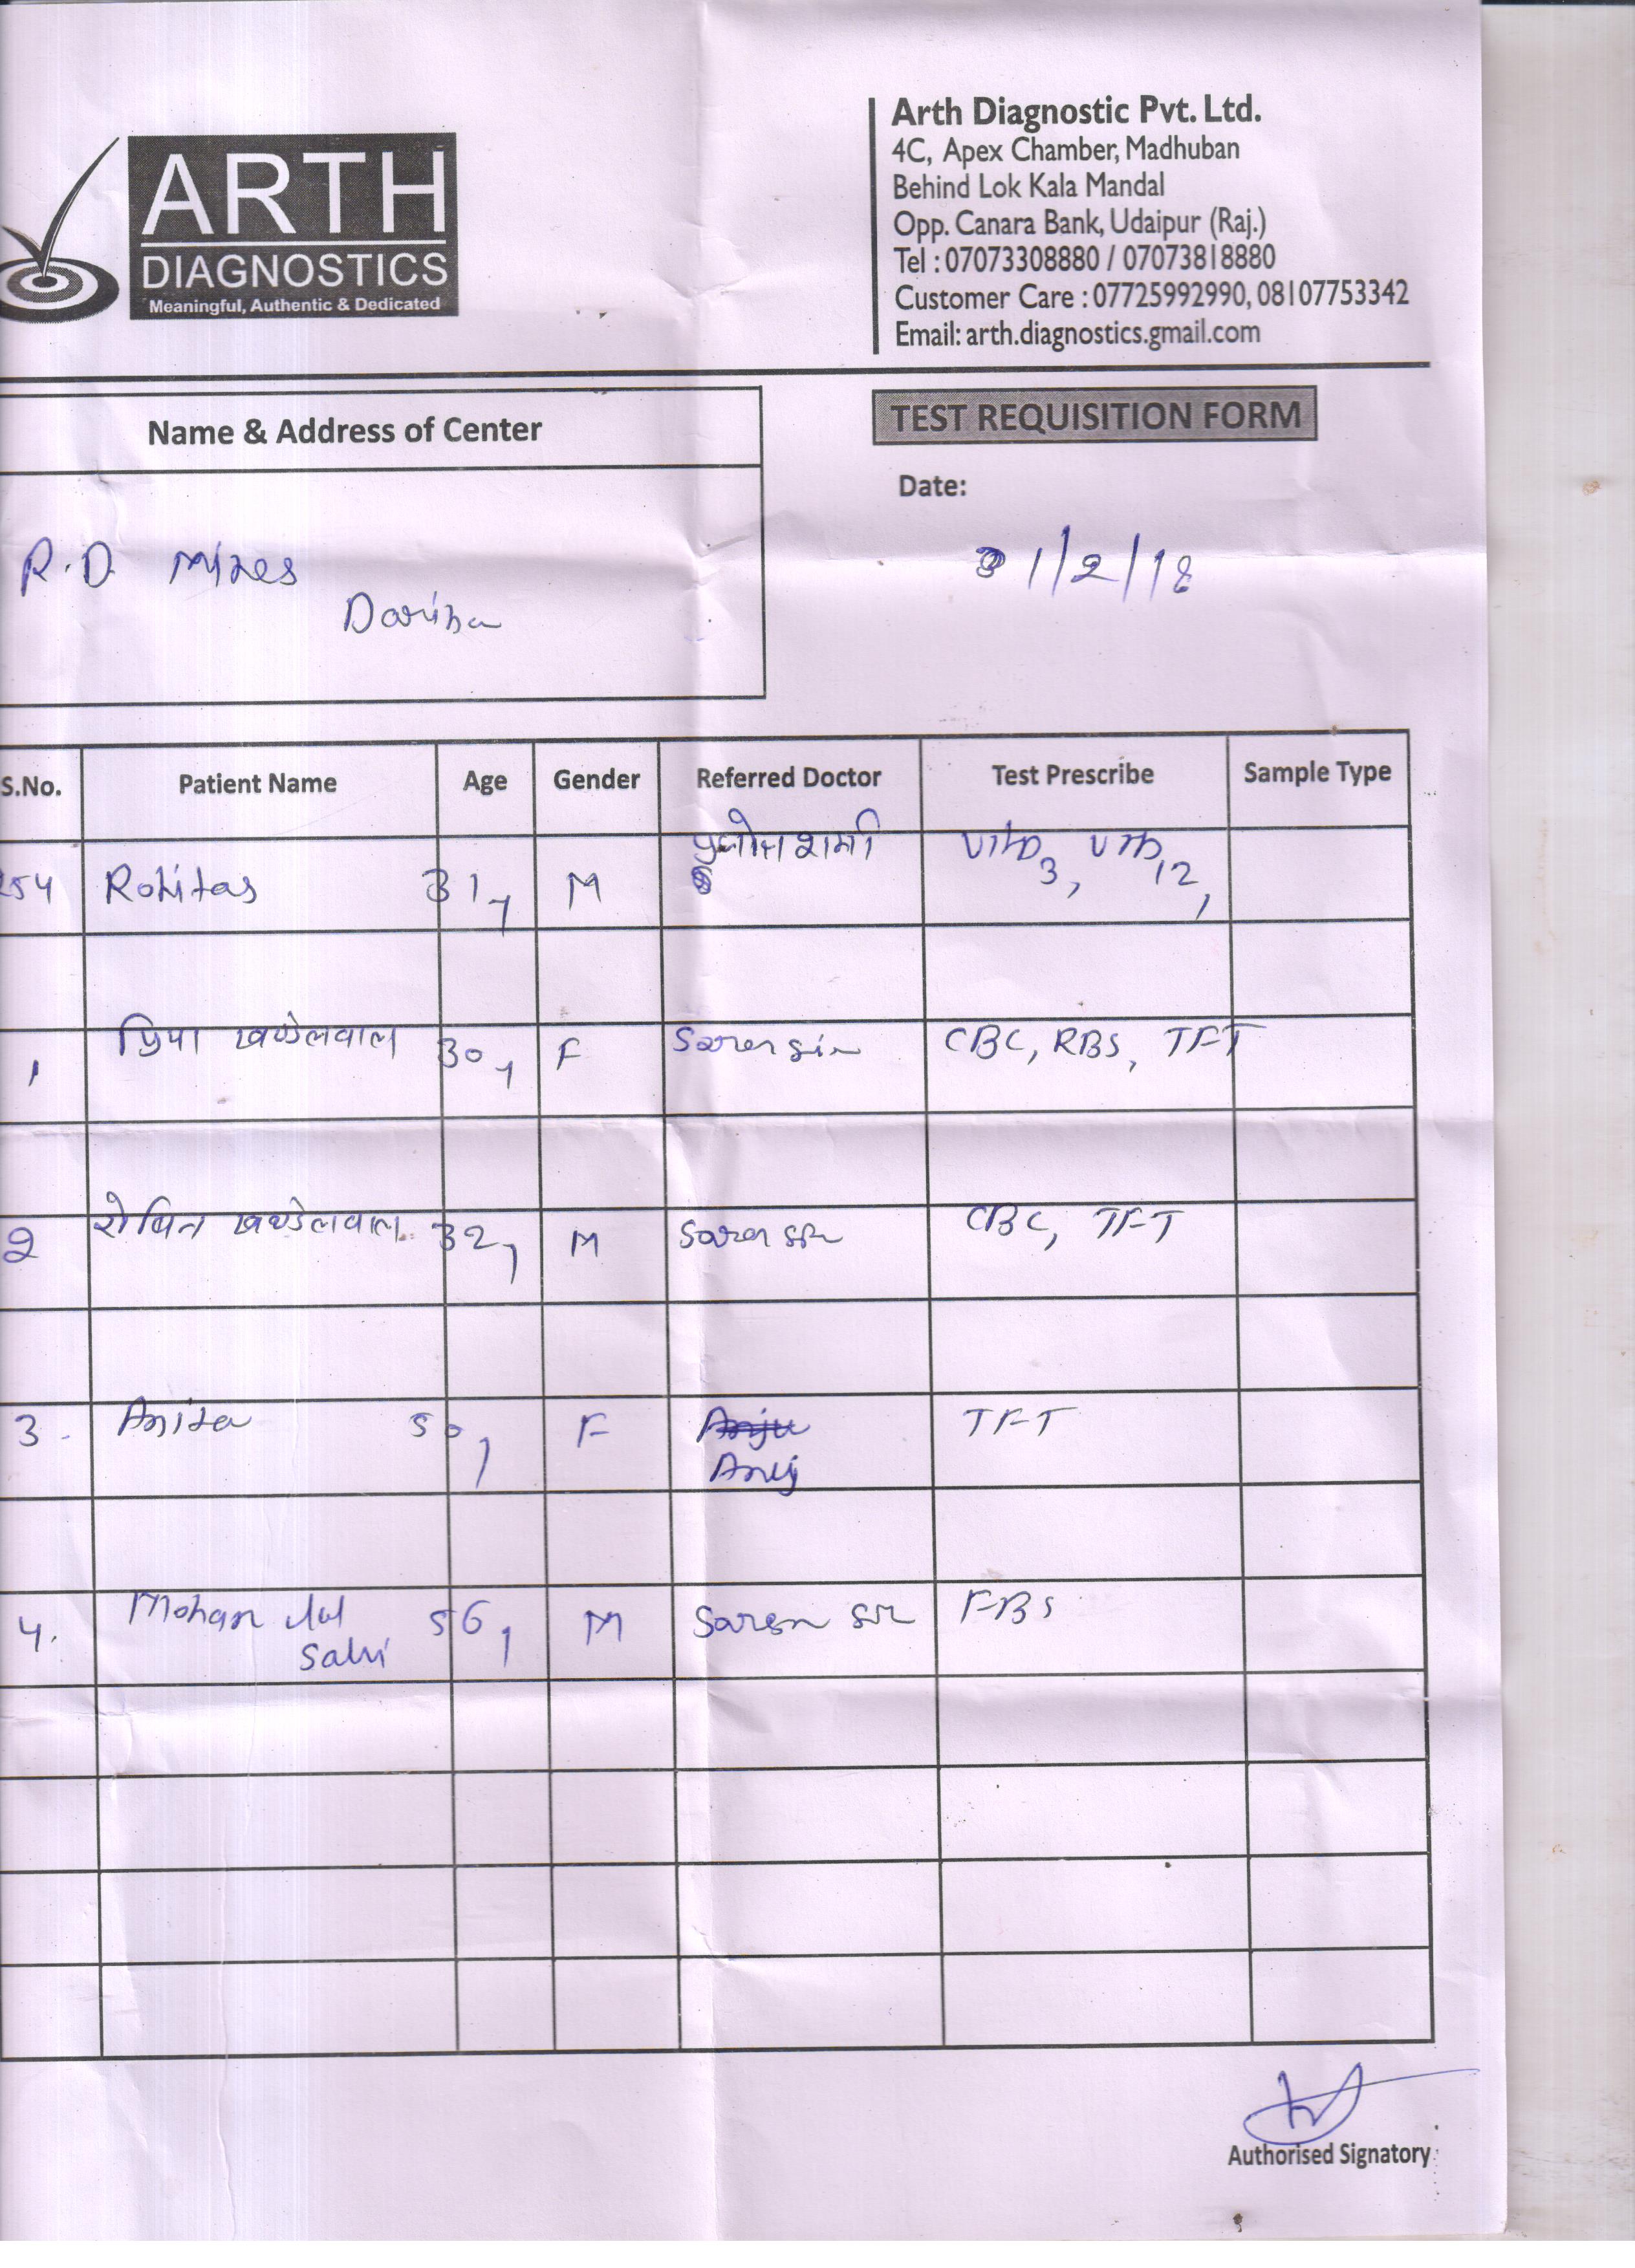 ARTH
DIAGNOSTICS
Meaningful, Authentic & Dedicated
Arth Diagnostic Pvt. Ltd.
4C, Apex Chamber, Madhuban
Behind Lok Kala Mandal
Opp. Canara Bank, Udaipur (Raj.)
Tel : 07073308880 / 07073818880
Customer Care : 07725992990, 08107753342
Email: arth.diagnostics.gmail.com
Name & Address of Center
TEST REQUISITION FORM
Date:
R.D. Mines
Dariba
1/2/18
S.No. Patient Name Age Gender Referred Doctor Test Prescribe Sample Type
254 Rohitas 31, M शर्मा VitD3, VitB12,
1 प्रिया खण्डेलवाल 30, F Saren sir CBC, RBS, TFT
2 रोबिन खण्डेलवाल 32, M Saren sir CBC, TFT
3. Anita 50, F Anju TFT
Anuj
4. Mohan lal 56, M Saren sir FBS
Salvi
Authorised Signatory